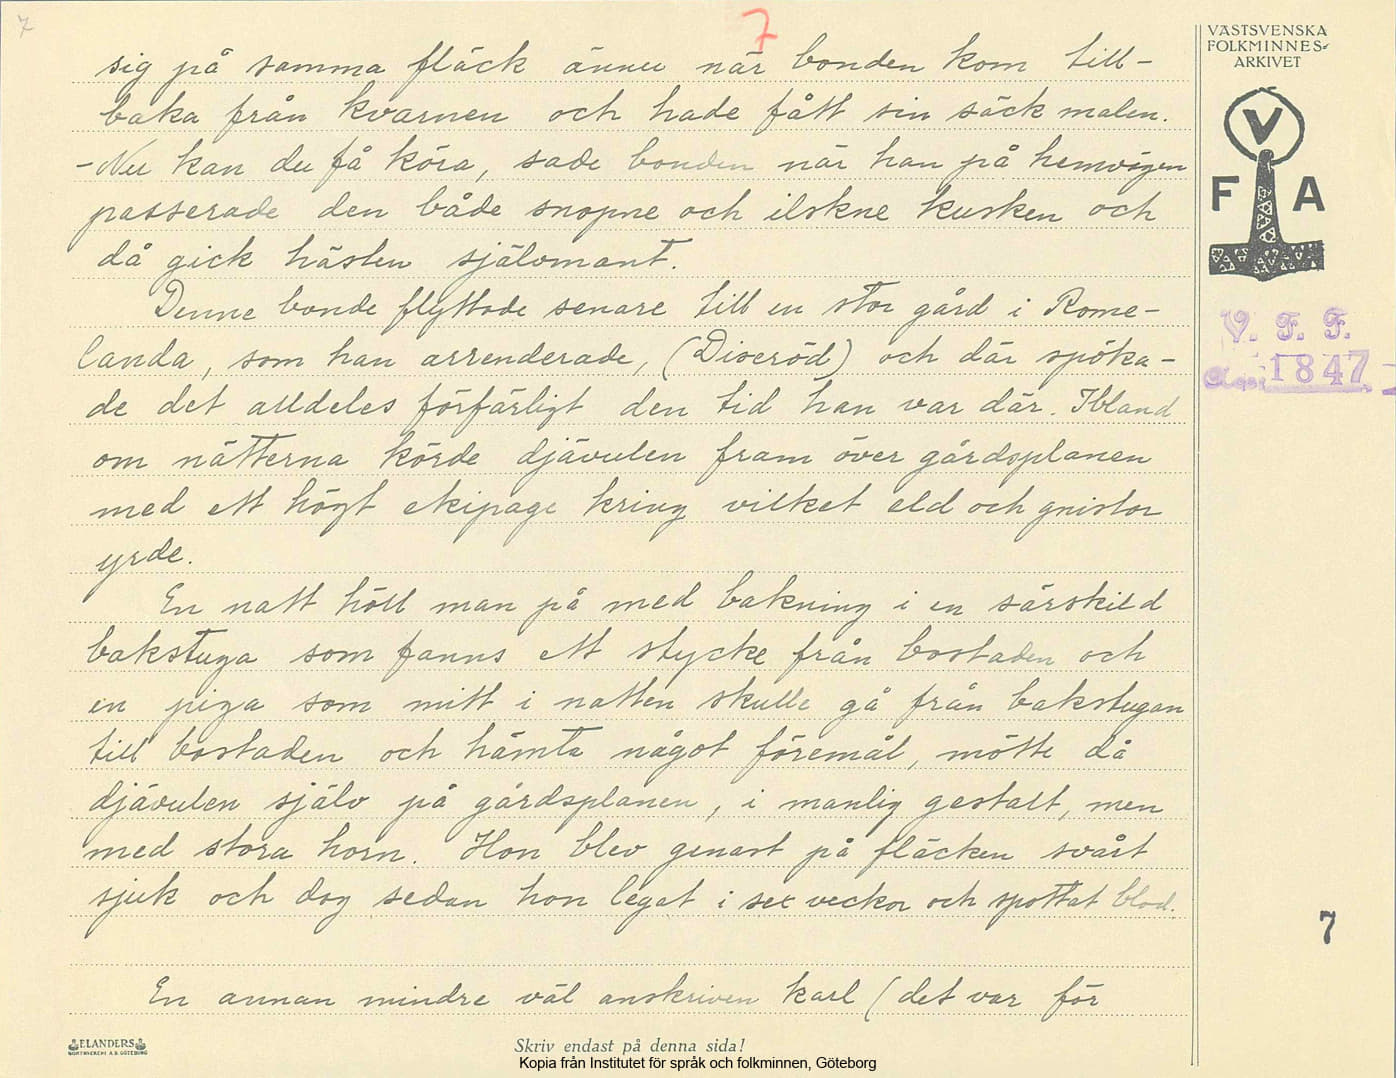 7
7
VÄSTSVENSKA
FOLKMINNES-
ARKIVET
V
F A
V. F. F.
1847
sig på samma fläck ännu när bonden kom till-
baka från kvarnen och hade fått sin säck malen.
- Nu kan du få köra, sade bonden när han på hemvägen
passerade den både snopne och ilskne kusken och
då gick hästen självmant.
Denne bonde flyttade senare till en stor gård i Rome-
landa, som han arrenderade, (Diseröd) och där spöka-
de det alldeles förfärligt den tid han var där. Ibland
om nätterna körde djävulen fram över gårdsplanen
med ett högt ekipage kring vilket eld och gnistor
yrde.
En natt höll man på med bakning i en särskild
bakstuga som fanns ett stycke från bostaden och
en piga som mitt i natten skulle gå från bakstugan
till bostaden och hämta något föremål, mötte då
djävulen själv på gårdsplanen, i manlig gestalt, men
med stora horn. Hon blev genast på fläcken svårt
sjuk och dog sedan hon legat i sex veckor och spottat blod.
7
En annan mindre väl anskriven karl (det var för
ELANDERS
BOKTRYCKERI A.B. GÖTEBORG
Skriv endast på denna sida!
Kopia från Institutet för språk och folkminnen, Göteborg